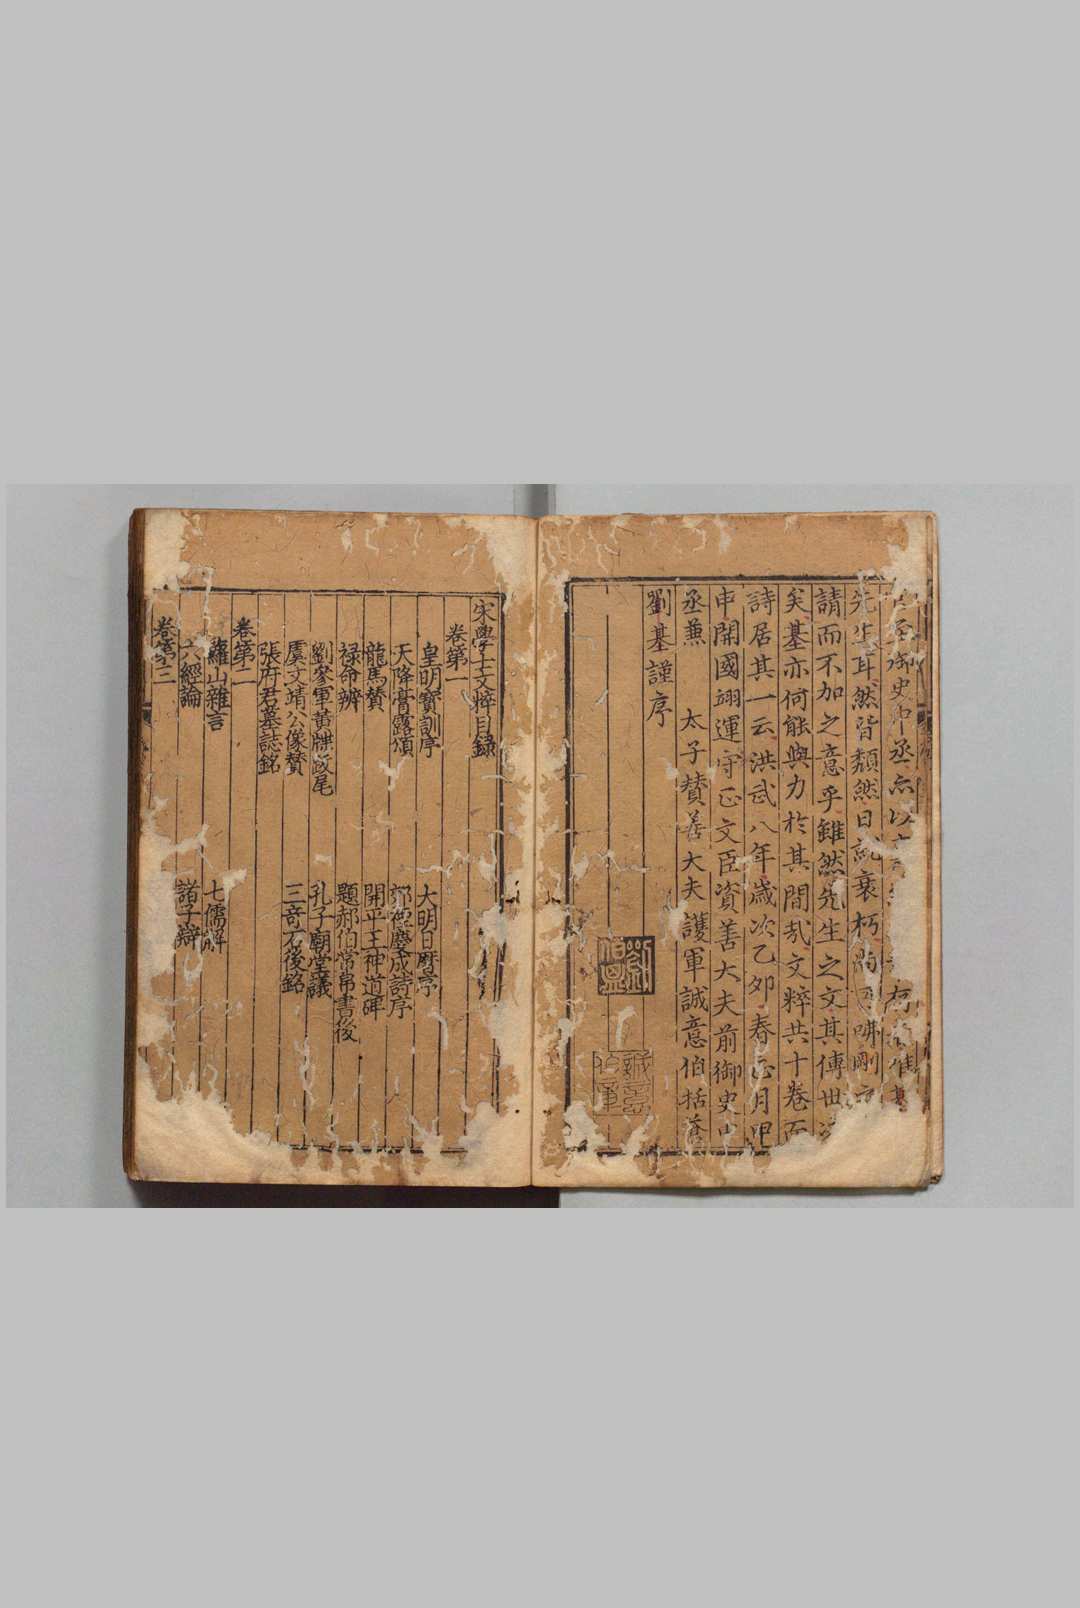 御史中丞亦以
先生耳然皆頹然日就衰朽尚剛
請而不加之意乎雖然先生之文其傳世
矣基亦何能與力於其間哉文粹共十卷而
詩居其一云洪武八年歲次乙卯春正月甲
申開國翊運守正文臣資善大夫前御史中
丞兼 太子贊善大夫護軍誠意伯括蒼
劉基謹序
劉伯溫
誠意伯章
宋學士文粹目錄
卷第一
皇明寶訓序 大明日曆序
天降膏露頌 郊禋慶成詩序
龍馬贊 開平王神道碑
禄命辨 題郝伯常帛書後
劉參軍黃牒政尾 孔子廟堂議
虞文靖公像贊 三奇石後銘
張府君墓誌銘
卷第二
蘿山雜言 七儒解
六經論 諸子辯
卷第三